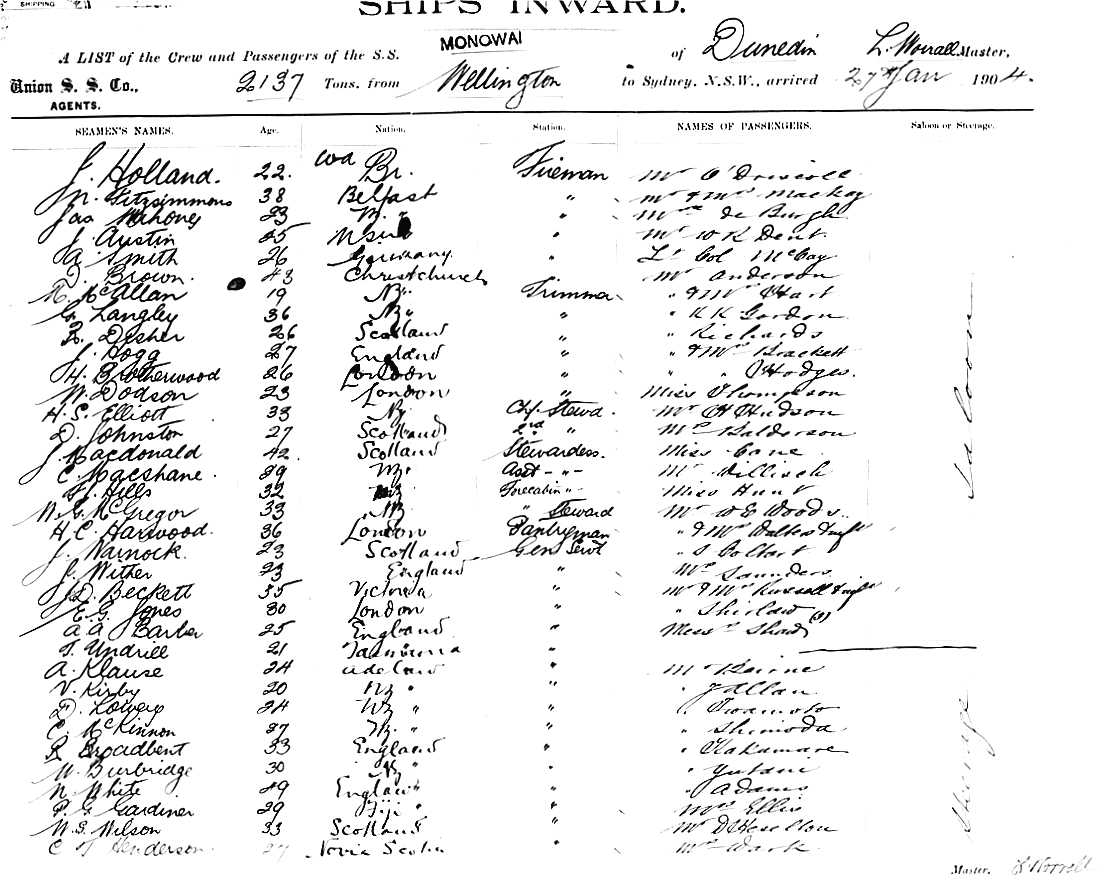 SHIPPING
SHIPS INWARD.
A LIST of the Crew and Passengers of the S.S. MONOWAI of Dunedin L. Worrall Master,
Union S. S. Co., 2137 Tons, from Wellington to Sydney, N.S.W., arrived 27th Jan 1904.
AGENTS.
SEAMEN'S NAMES. Age. Nation. Station. NAMES OF PASSENGERS. Saloon or Steerage.
J. Holland. 22. Br. Fireman Mr O'Driscoll
M. Fitzsimmons 38 Belfast " Mr & Mrs Mackay
Jas Mahoney 23 " de Burgh
J. Austin 25 " Mr W K Dent
A. Smith 26 Germany " Lt Col McCay
D. Brown. 43 Christchurch Mr Anderson
McAllan 19 NZ Trimmer " & Mrs Hart
G. Langley 36 NZ " " Gordon
Disher 26 Scotland " " Richards
J. Hogg 27 England " " & Mrs Brackett
H. Brotherwood 26 London " " " Hodges
W. Dodson 23 London " Miss Thompson
H. S. Elliott 33 NZ Chf. Stewd. Mr H Hudson
D. Johnston 27 Scotland 2nd " Balderson
J. Macdonald 42 Scotland Stewardess. Miss Cane
C. Macshane 29 NZ Asst - " - Mr Willisch
Hills 32 NZ Forecabin " Miss Hunt
McGregor 33 NZ " Steward Mr W E Woods
H. C. Harwood. 36 London Pantryman " & Mrs
J. Warnock. 23 Scotland Genl Servt " S Coltart
J. Wither 23 England " Saunders
J. D. Beckett 35 Victoria " Mr & Mrs Russell & inft
E. G. Jones 30 London " " Shirlaw
A. A. Barber 25 England " Shaw (3)
Saloon
T. Undrill 21 Tasmania "
A. Klause 24 Adelaide "
V. Kirby 20 NZ " " " J Allan
D. Lowery 24 NZ " " " Iwamoto
C. McKinnon 27 NZ " " " Shimoda
R Broadbent 33 England " " Nakamura
W. Burbridge 30 NZ " " Yutani
N. White 49 England " " Adams
P. G. Gardiner 29 Fiji " " Mrs Ellis
Wilson 33 Scotland "
C Henderson 27 Nova Scotia Wark
Steerage
Master. L Worrall